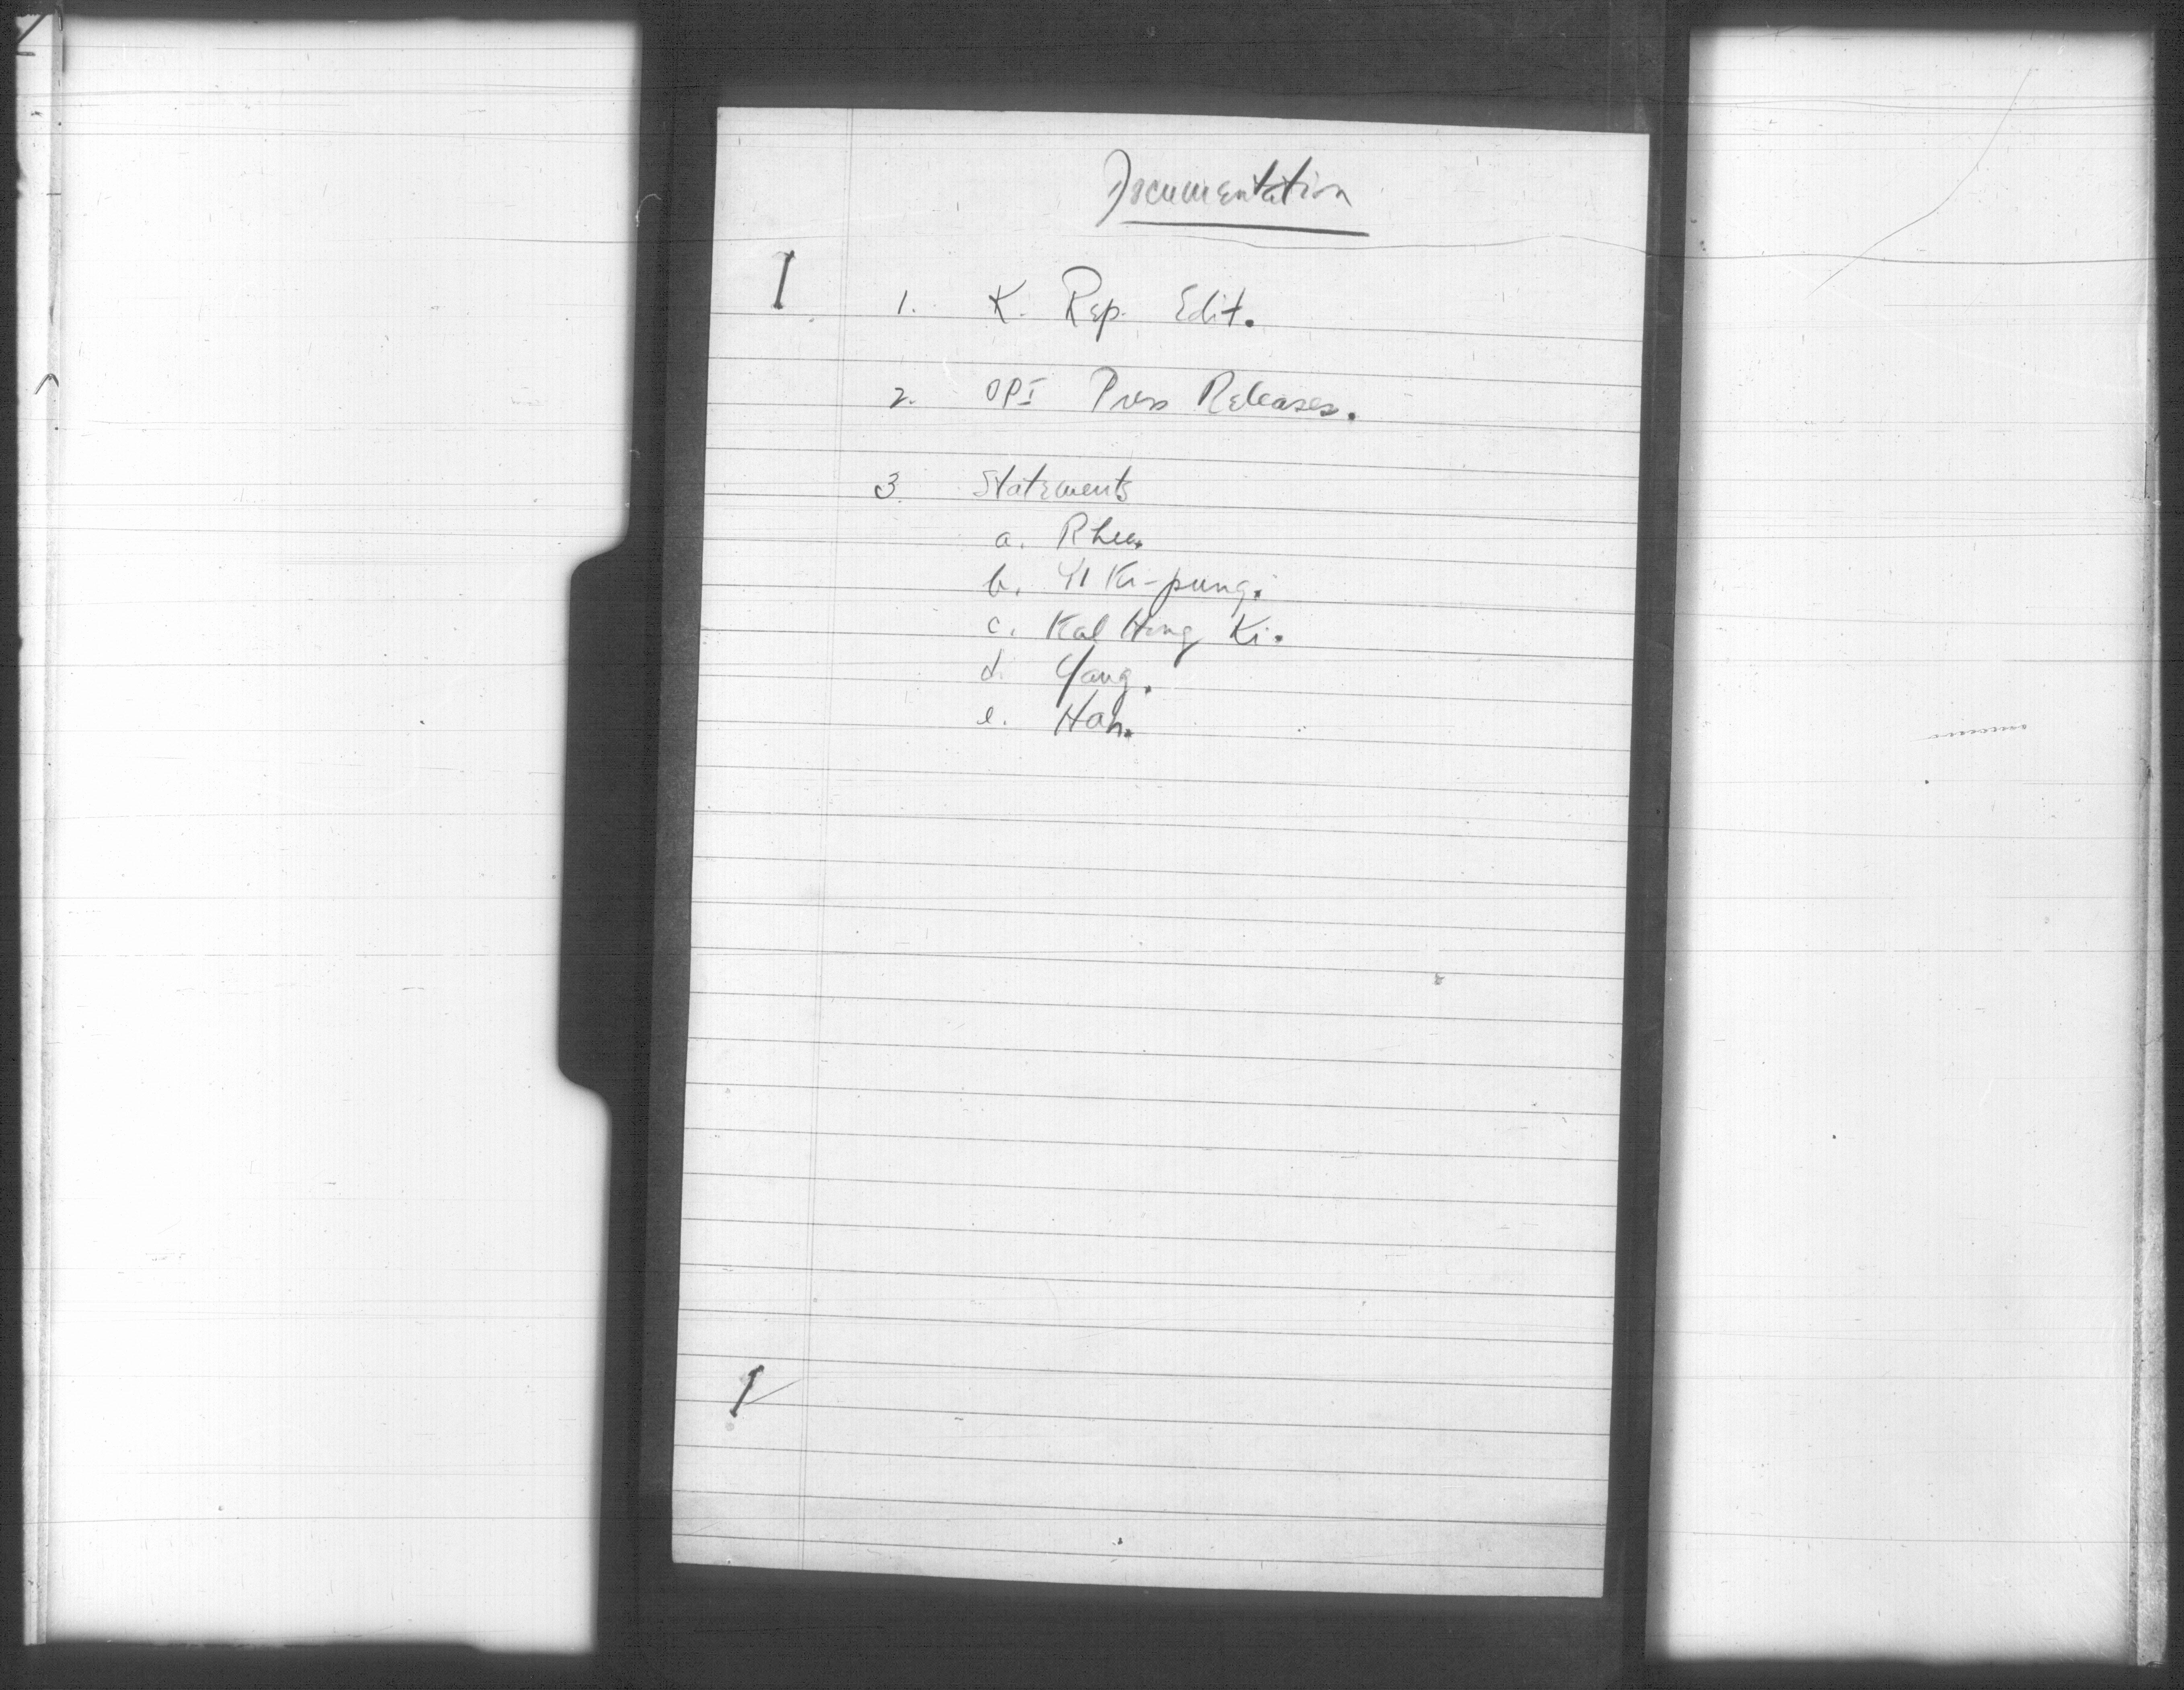 Documentation
I 1. K. Rep. Edit.
2. OPI Press Releases.
3. Statements
a. Rhee.
b. Yi Ki-pung.
c. Kal Hong Ki.
d. Yang.
e. Hah.